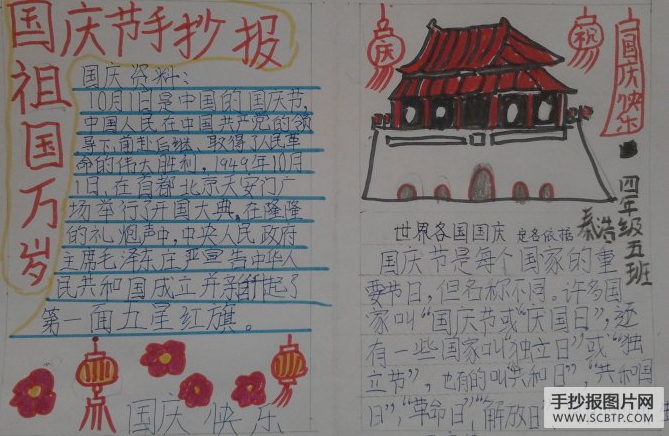 国庆节手抄报
祖国万岁
国庆资料:
10月1日是中国的国庆节,
中国人民在中国共产党的领
导下,前赴后继,取得了人民革
命的伟大胜利。1949年10月
1日,在首都北京天安门广
场举行了开国大典。在隆隆
的礼炮声中,中央人民政府
主席毛泽东庄严宣告中华人
民共和国成立并亲自升起了
第一面五星红旗。
国庆快乐
庆
祝
国庆快乐
四年级五班
秦浩
世界各国国庆 定名依据
国庆节是每个国家的重
要节日,但名称不同。许多国
家叫“国庆节或“庆国日”,还
有一些国家叫“独立日”或“独
立节”,也有的叫“共和日”,“共和国
日”,“革命日”,“解放日
手抄报图片网
WWW.SCBTP.COM